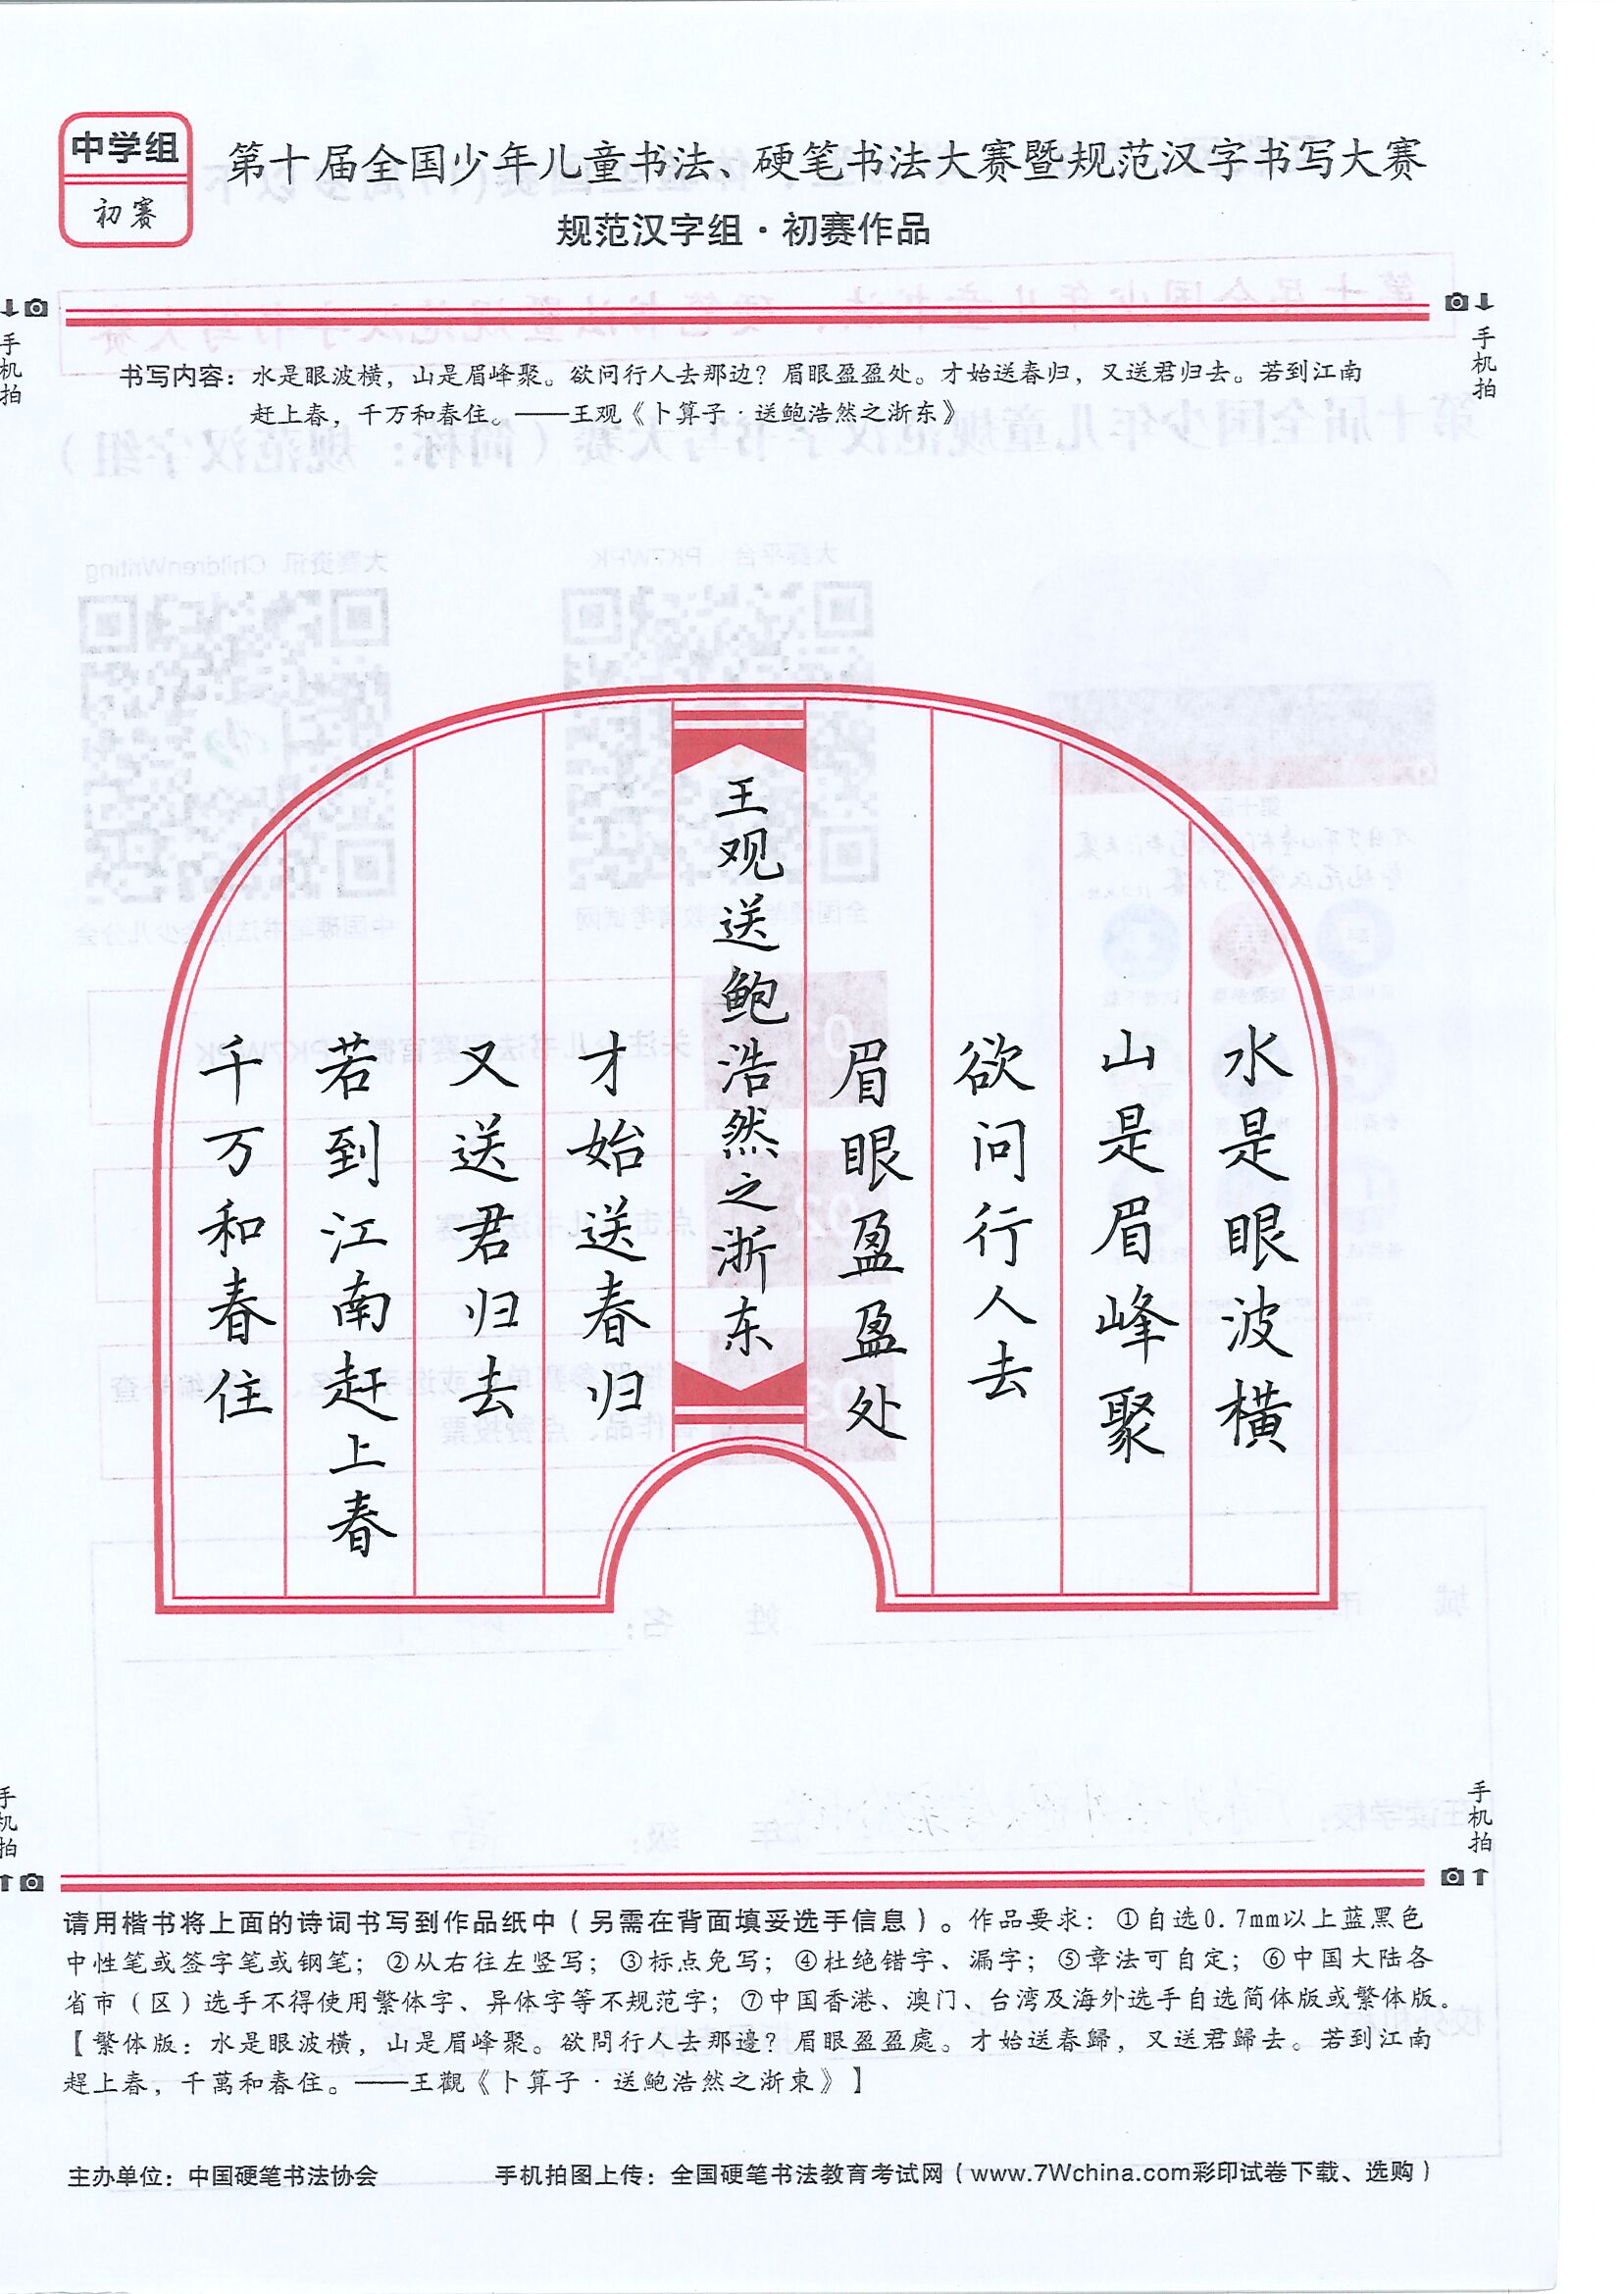 中学组
初赛
第十届全国少年儿童书法、硬笔书法大赛暨规范汉字书写大赛
规范汉字组·初赛作品
手机拍
手机拍
书写内容：水是眼波横，山是眉峰聚。欲问行人去那边？眉眼盈盈处。才始送春归，又送君归去。若到江南
赶上春，千万和春住。——王观《卜算子·送鲍浩然之浙东》
水是眼波横
山是眉峰聚
欲问行人去
眉眼盈盈处
王观送鲍浩然之浙东
才始送春归
又送君归去
若到江南赶上春
千万和春住
手机拍
手机拍
请用楷书将上面的诗词书写到作品纸中（另需在背面填妥选手信息）。作品要求：①自选0.7mm以上蓝黑色
中性笔或签字笔或钢笔；②从右往左竖写；③标点免写；④杜绝错字、漏字；⑤章法可自定；⑥中国大陆各
省市（区）选手不得使用繁体字、异体字等不规范字；⑦中国香港、澳门、台湾及海外选手自选简体版或繁体版。
【繁体版：水是眼波橫，山是眉峰聚。欲問行人去那邊？眉眼盈盈處。才始送春歸，又送君歸去。若到江南
趕上春，千萬和春住。——王觀《卜算子·送鮑浩然之浙東》】
主办单位：中国硬笔书法协会
手机拍图上传：全国硬笔书法教育考试网（www.7Wchina.com彩印试卷下载、选购）